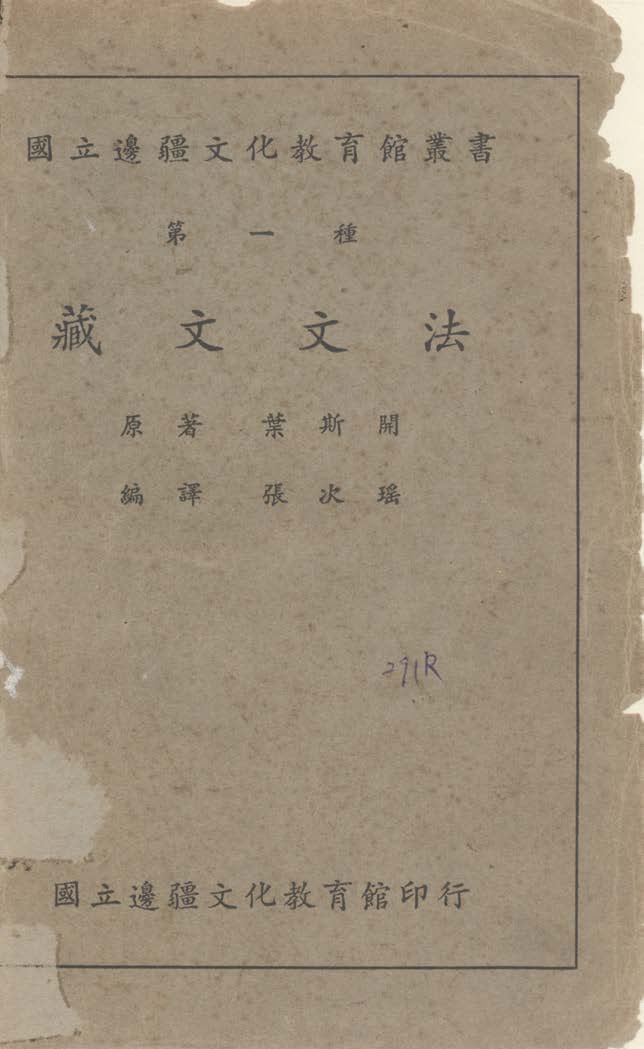 國立邊疆文化教育館叢書
第一種
藏文文法
原著 葉斯開
編譯 張次瑶
291R
國立邊疆文化教育館印行